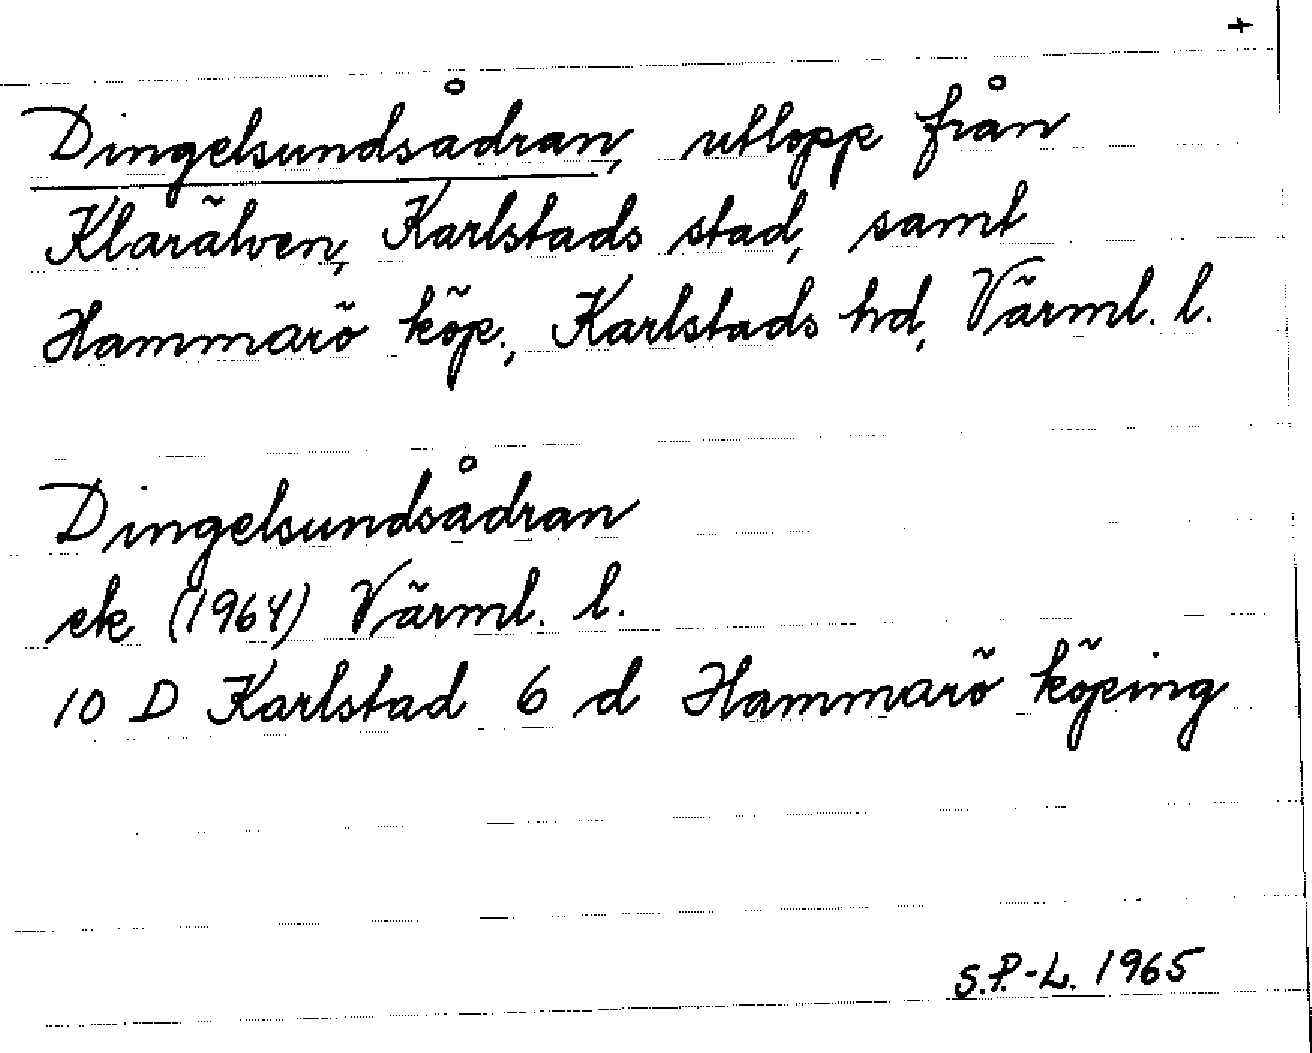 +
Dingelsundsådran, utlopp från
Klarälven, Karlstads stad, samt
Hammarö köp., Karlstads hd, Värml. l.
Dingelsundsådran
ek (1964) Värml. l.
10 D Karlstad 6 d Hammarö köping
S.P.-L. 1965